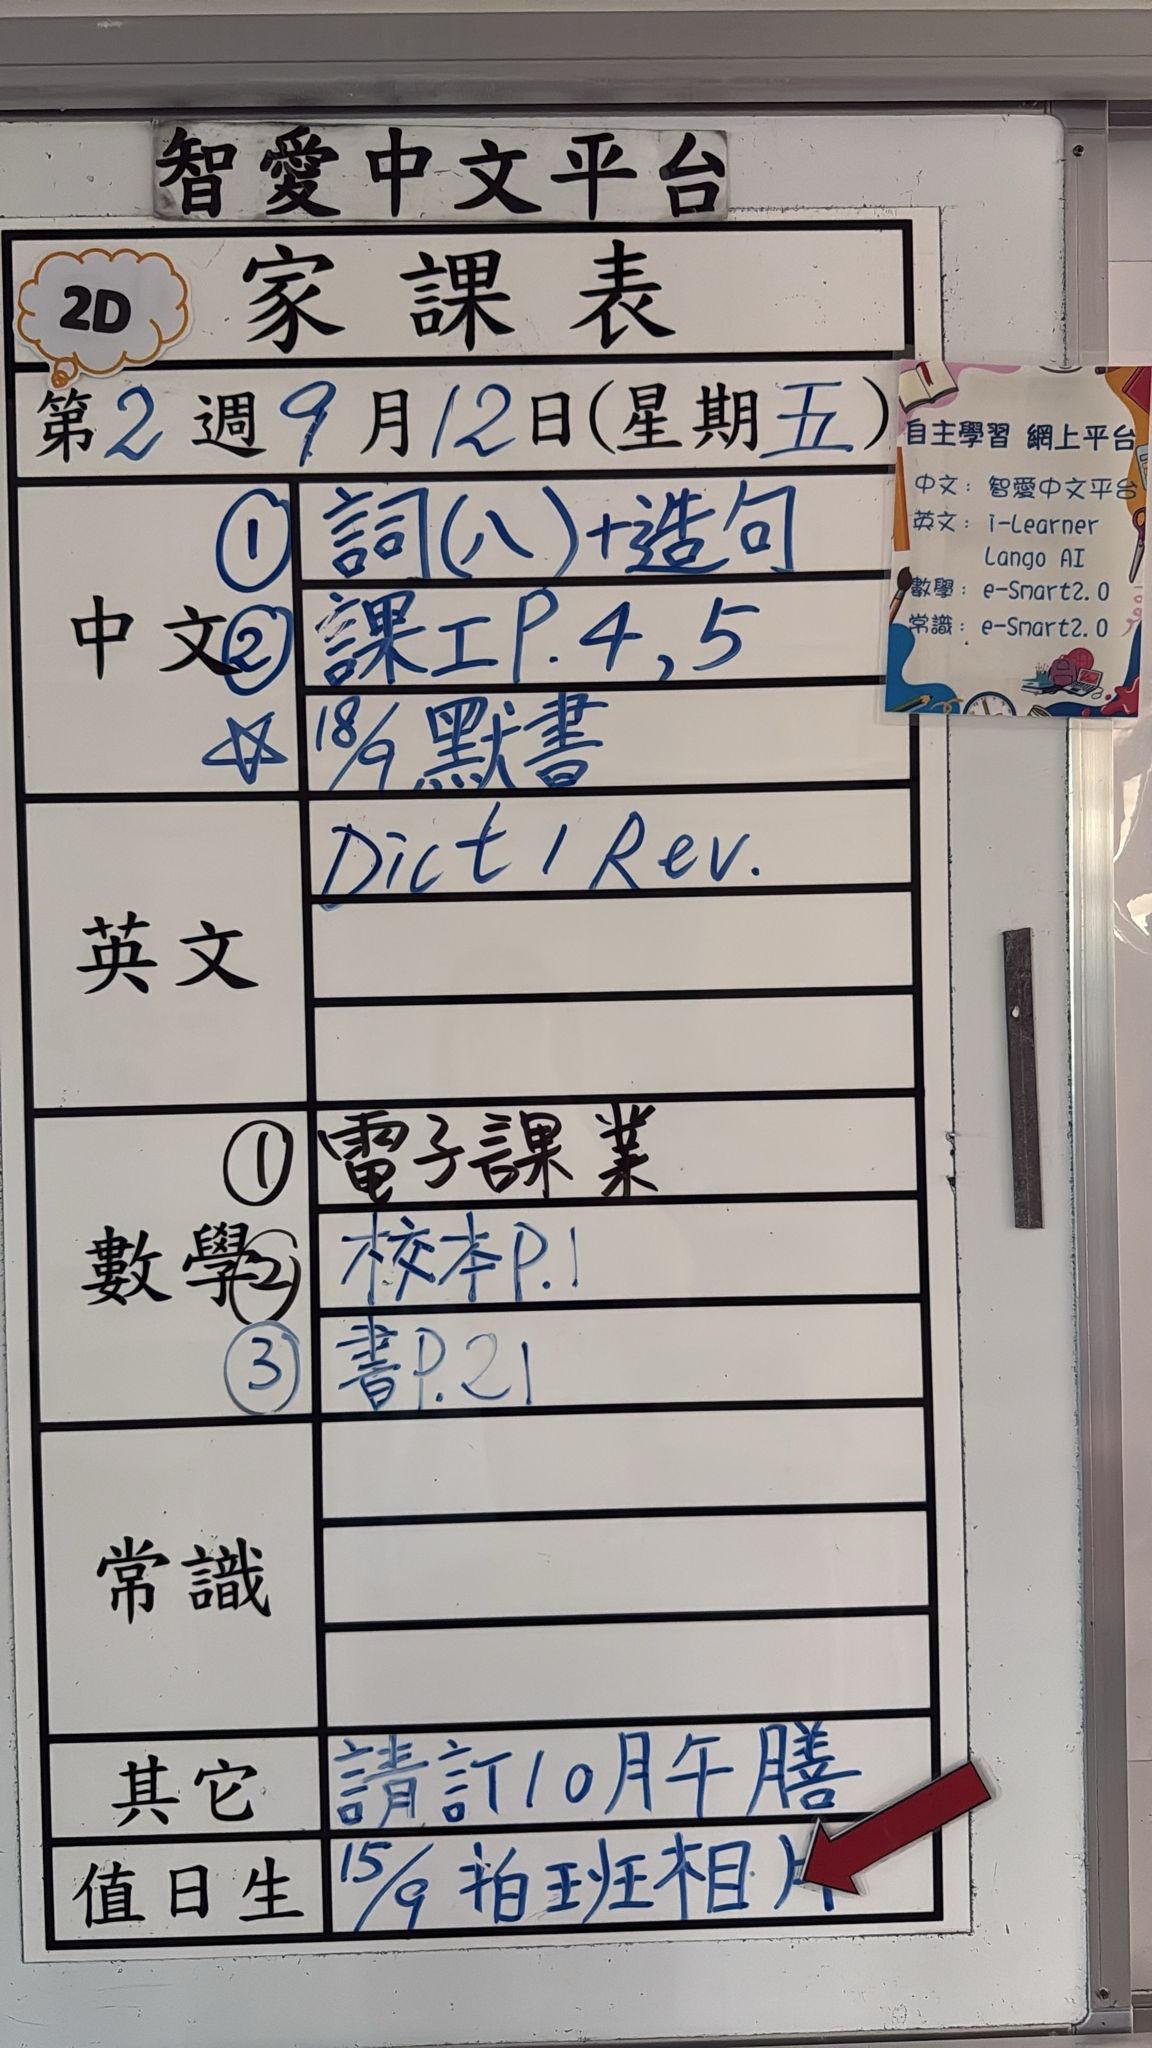 智愛中文平台
2D 家課表
第2週9月12日(星期五)
自主學習 網上平台
中文：智愛中文平台
英文：i-Learner
Lango AI
數學：e-Smart2.0
常識：e-Smart2.0
中文
① 詞(八)+造句
② 課工P.4,5
☆ 18/9 默書
英文
Dict 1 Rev.
數學
① 電子課業
② 校本P.1
③ 書P.21
常識
其它 請訂10月午膳
值日生 15/9 拍班相片